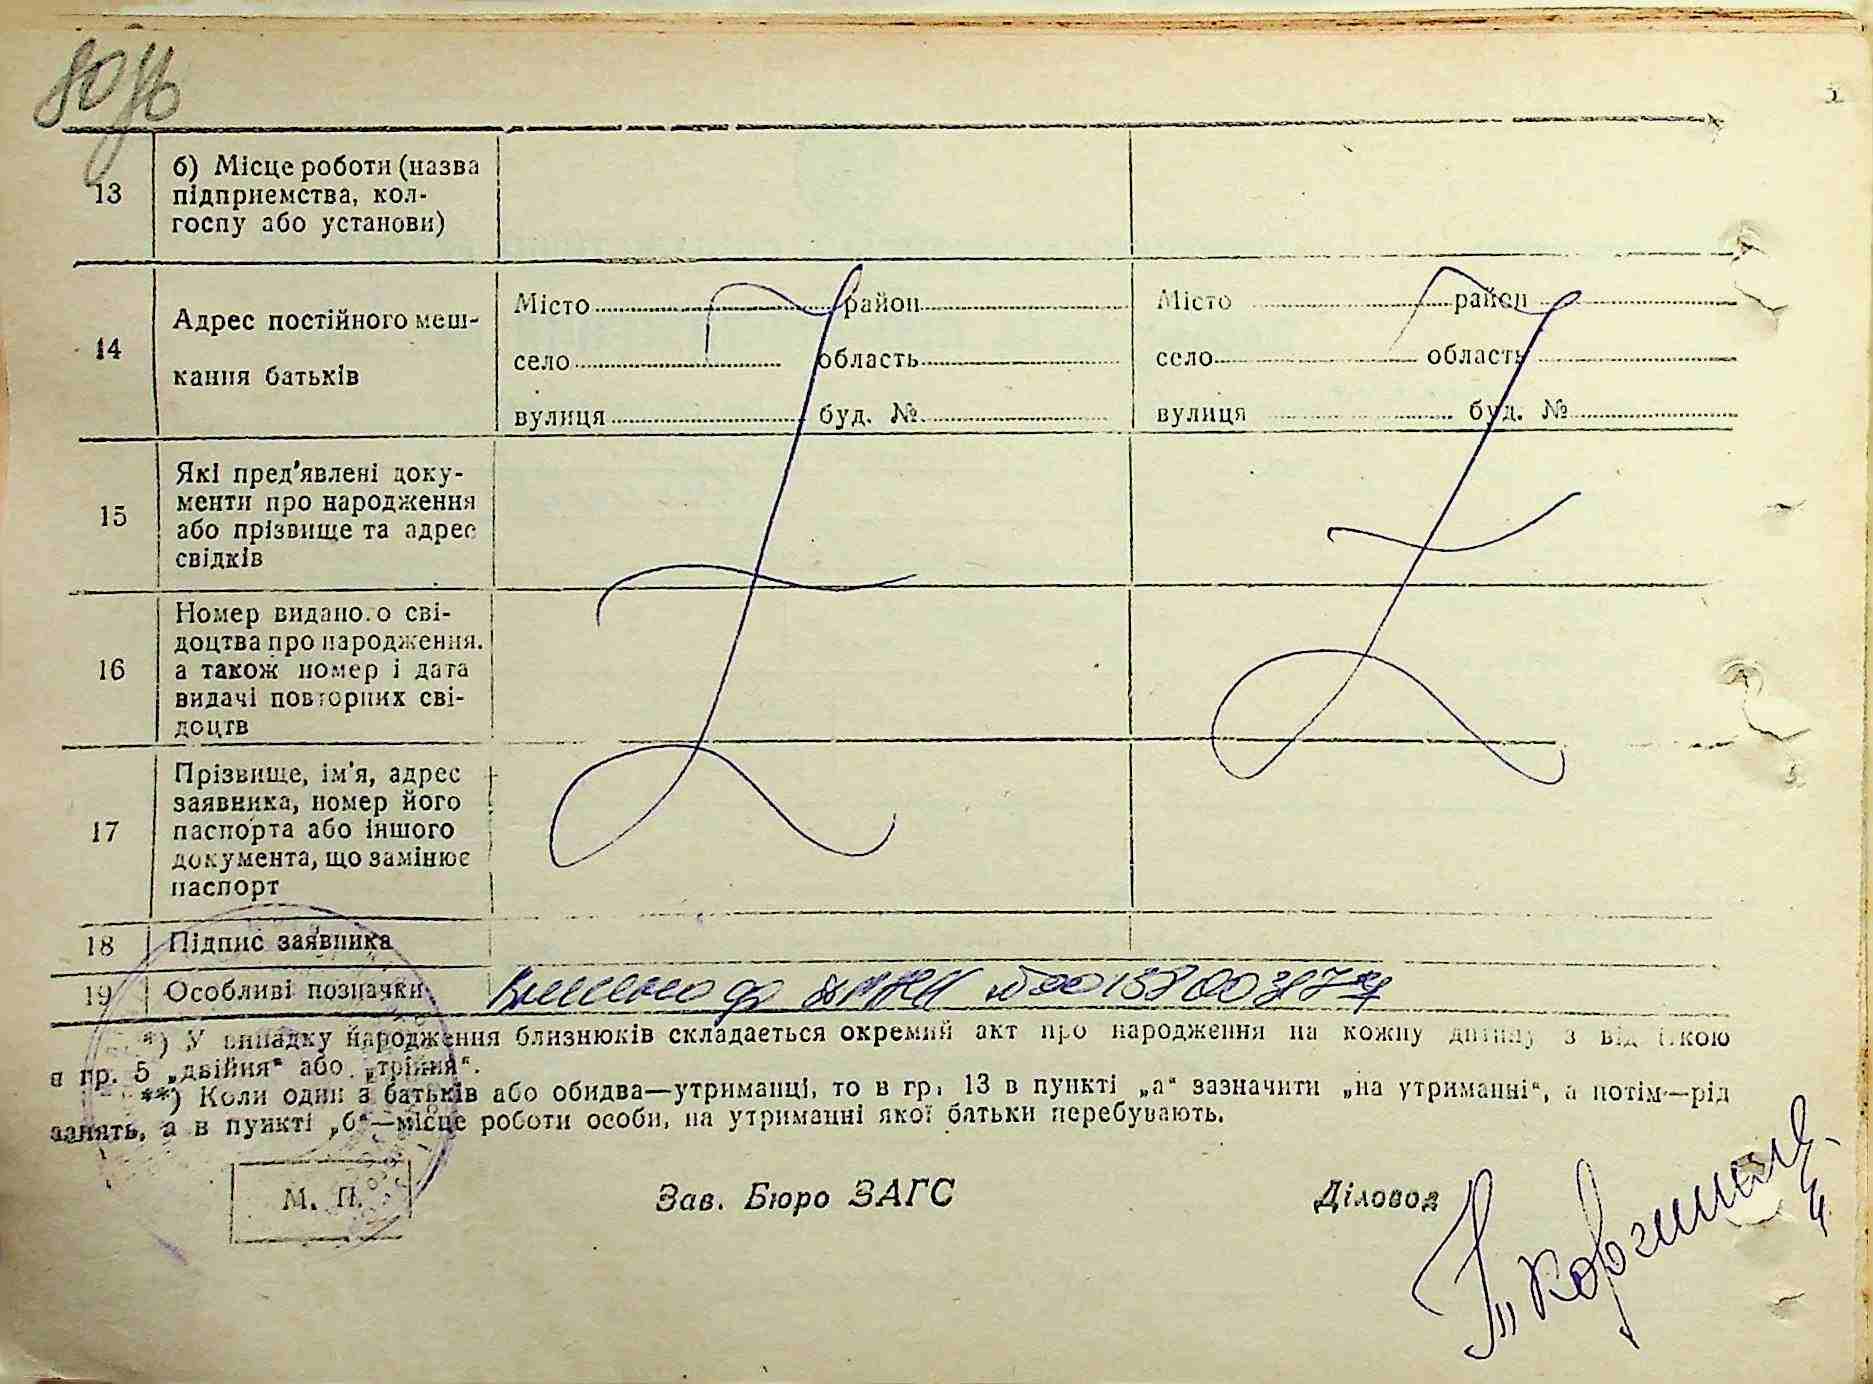 80
13 б) Місце роботи (назва
підприємства, кол-
госпу або установи)
14 Адрес постійного меш-
кання батьків
Місто район
село область
вулиця буд. №
Місто район
село область
вулиця буд. №
15 Які пред'явлені доку-
менти про народження
або прізвище та адрес
свідків
16 Номер виданого сві-
доцтва про народження,
а також номер і дата
видачі повторних сві-
доцтв
17 Прізвище, ім'я, адрес
заявника, номер його
паспорта або іншого
документа, що замінює
паспорт
18 Підпис заявника
19 Особливі позначки Внесено до №00157003877
*) У випадку народження близнюків складається окремий акт про народження на кожну дитину з від іткою
в гр. 5 „двійня“ або „трійня“.
**) Коли один з батьків або обидва—утриманці, то в гр. 13 в пункті „а“ зазначити „на утриманні“, а потім—рід
занять, а в пункті „б“—місце роботи особи, на утриманні якої батьки перебувають.
М. П. Зав. Бюро ЗАГС Діловод